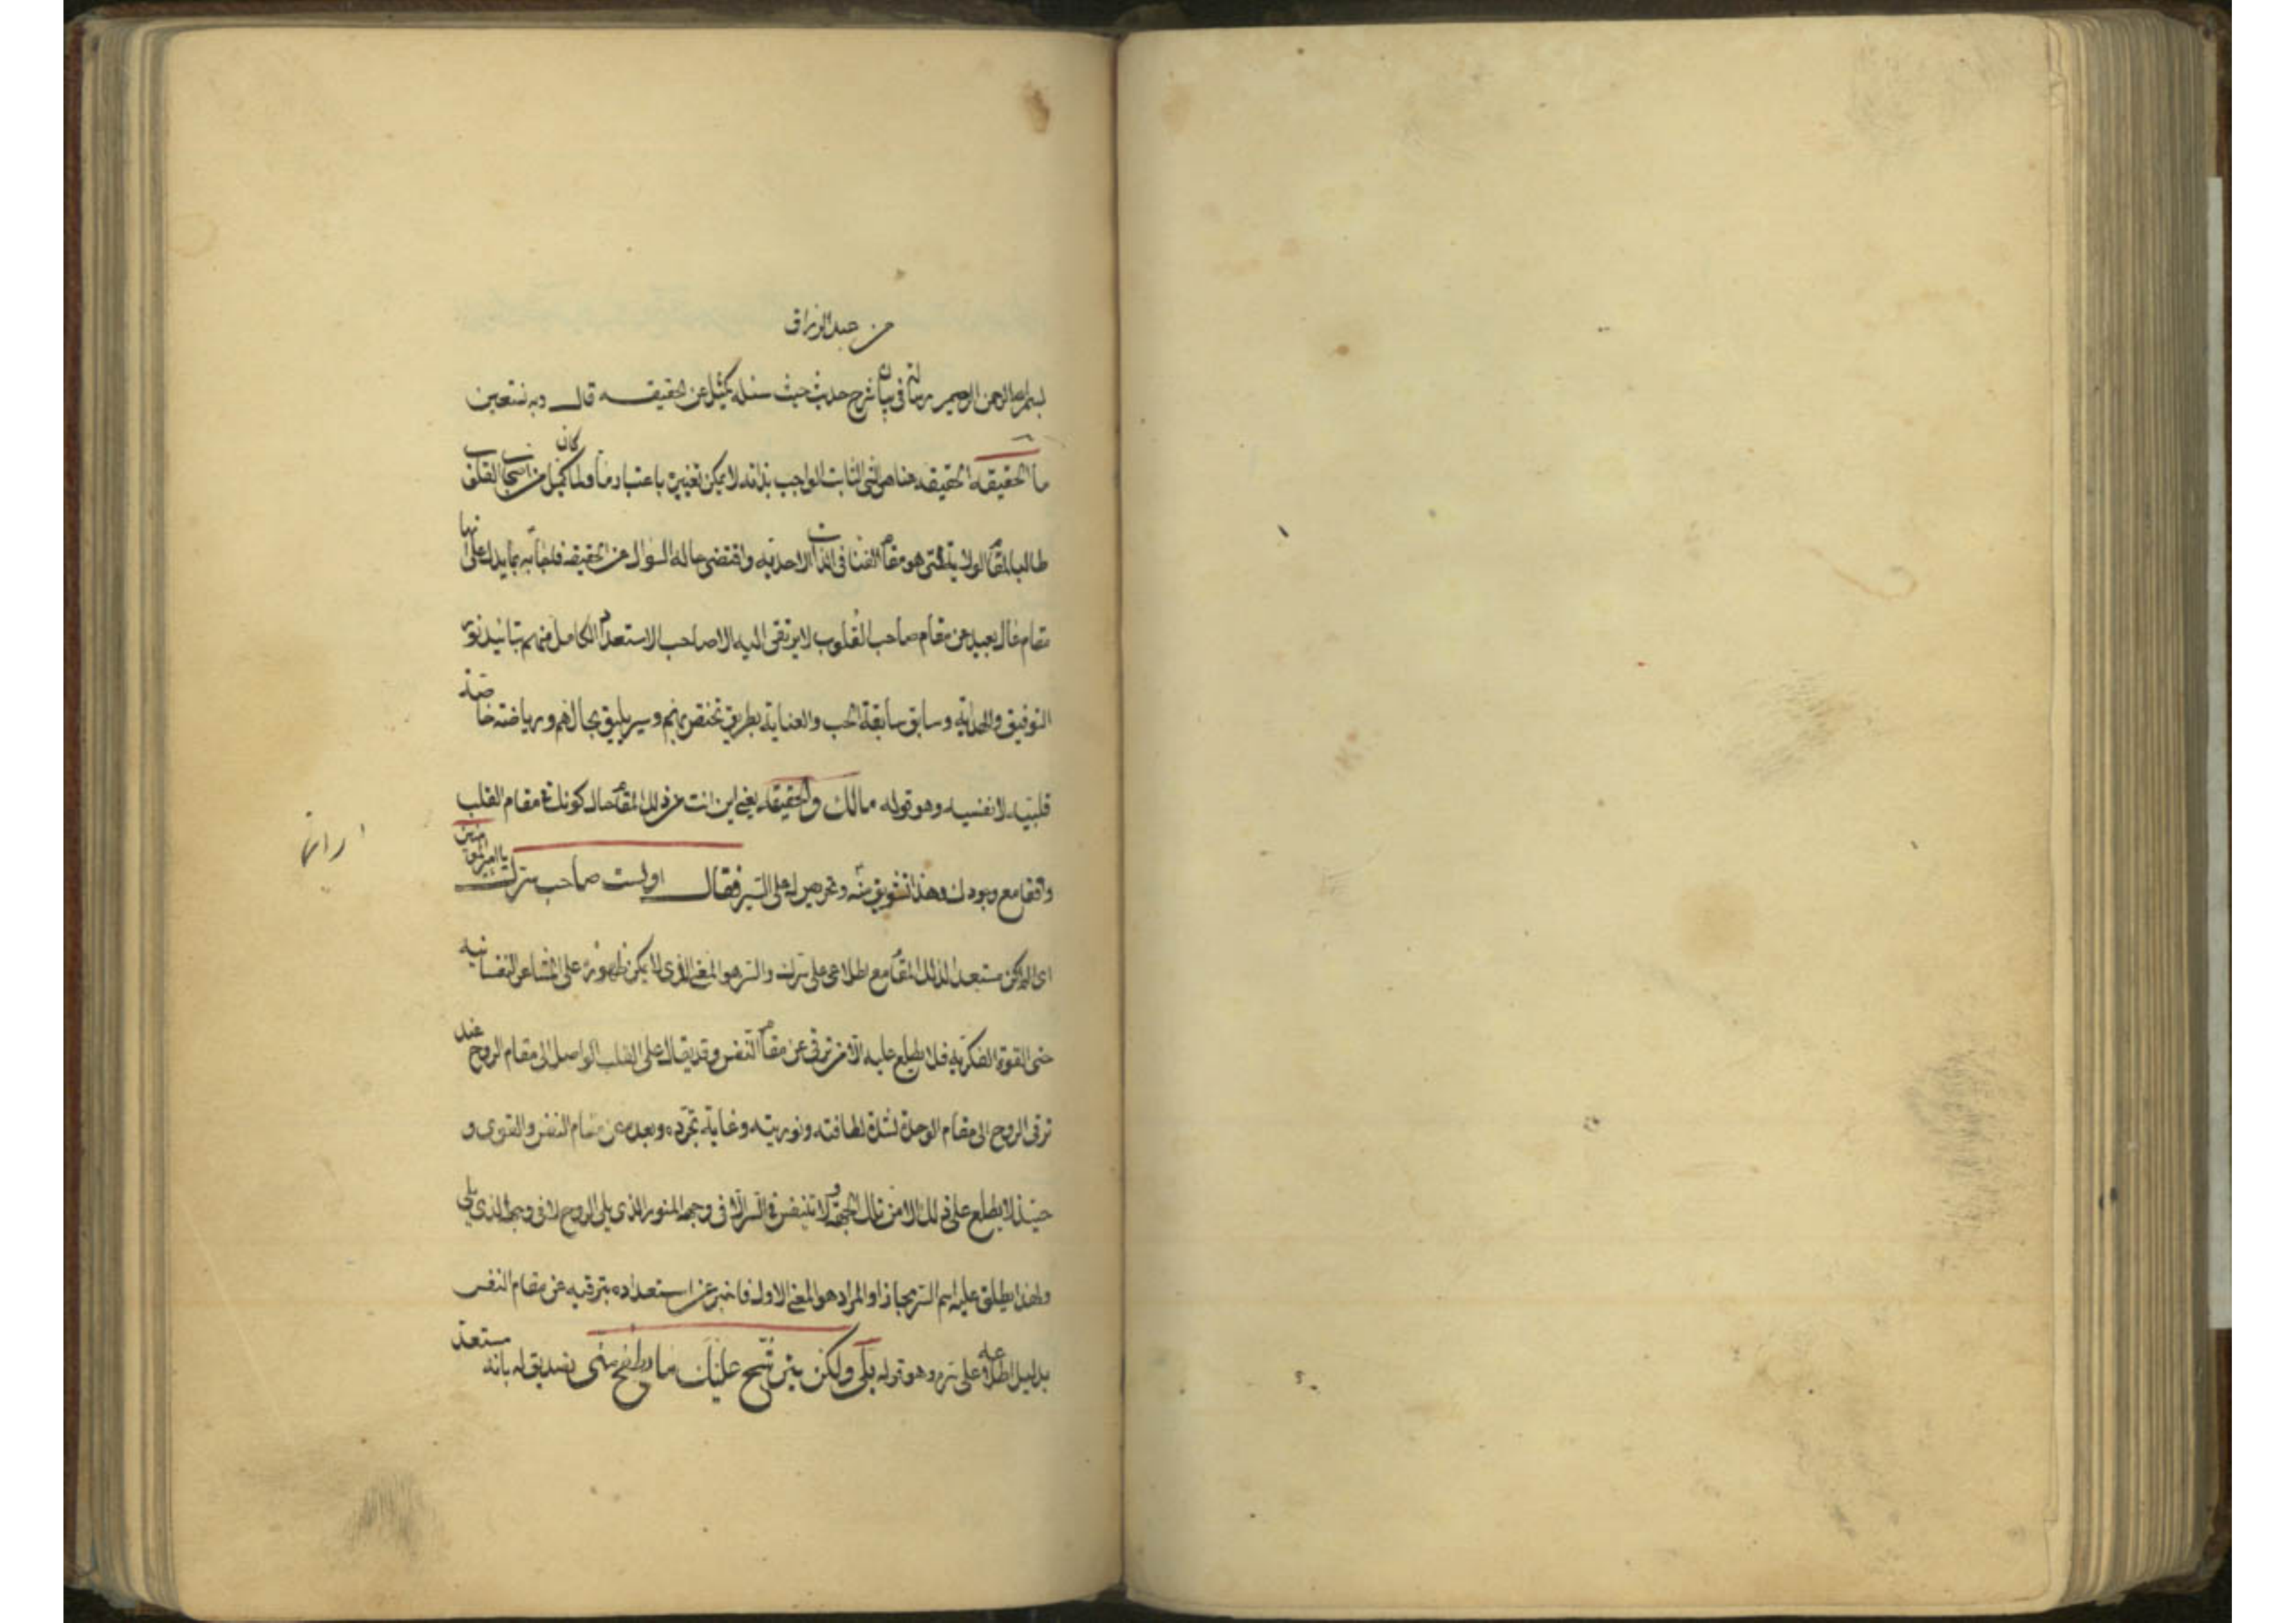 من عبد الرزاق
بسم الله الرحمن الرحيم رسالة في بيان شرح حديث حيث سئله كميل عن الحقيقه قال وبه نستعين
ما الحقيقه الحقيقه هنا هى الشئ الثابت الواجب بذاته لا يمكن تغييره باعتبار ما ولما كان كميل من اصحاب القلوب
طالبا لمقام الولاية التى هو مقام الفنا فى الذات الاحديه واقتضى حاله السوال عن الحقيقه فاجابه بما يدل على انها
مقام عال بعيد عن مقام صاحب القلوب لا يرتقى اليه الا صاحب الاستعداد الكامل منهم بتائيد نور
التوفيق والهداية وسابق سابقة الحب والعناية بطريق تختص بهم وسير يليق بحالهم ورياضته خاصة
قلبيه لا نفسيه وهو قوله مالك والحقيقه يعنى اين انت من ذلك المقام حال كونك فى مقام القلب
واقفا مع وجودك وهذا تشويق منه وتحريص له على السير فقال اولست صاحب سرك يا امير المؤمنين
اى الم اكن مستعدا لذلك المقام مع اطلاعى على سرك والسر هو المعنى الذى لا يمكن ظهوره على المشاعر النفسانيه
حتى القوة الفكريه فلا يطلع عليه الا من ترقى عن مقام النفس وقد يقال على القلب الواصل الى مقام الروح عند
ترقى الروح الى مقام الوحدة لشدة لطافته ونوريته وغاية تجرده وبعده عن مقام النفس والقوى و
حينئذ لا يطلع على ذلك الا من تلك الجهة و لا تنتقش السر الا فى وجهه المنور الذى يلى الروح لا فى وجهه الذى يلى
ولهذا يطلق عليه اسم السر مجازا والمراد هو المعنى الاول فاخبر عن استعداده بترقيه عن مقام النفس
بدليل اطلاعه على سره وهو قوله بلى ولكن يترشح عليك ما يطفح منى تصديق له بانه مستعد